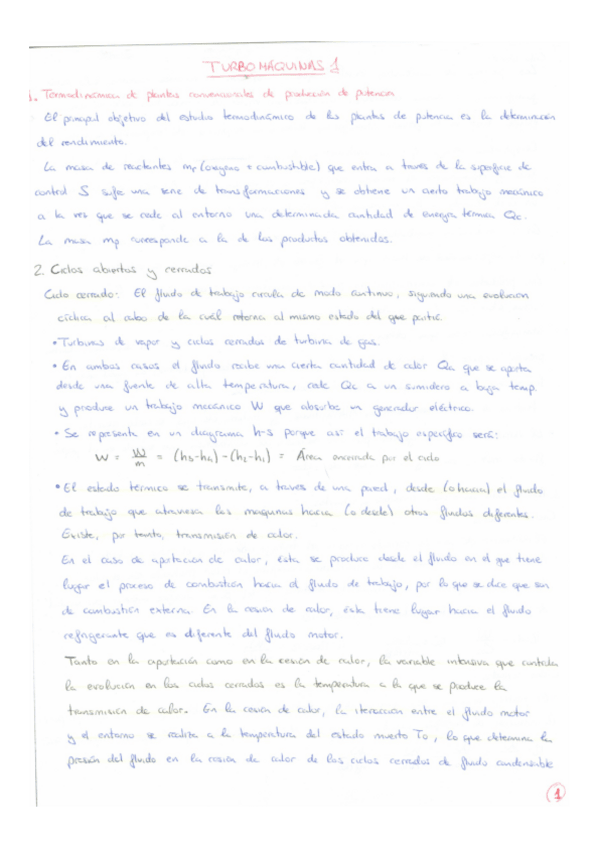 TURBOMÁQUINAS 1
1. Termodinámica de plantas convencionales de producción de potencia
El principal objetivo del estudio termodinámico de las plantas de potencia es la determinación
del rendimiento.
La masa de reactantes mp (oxígeno + combustible) que entra a través de la superficie de
control S sufre una serie de transformaciones y se obtiene un cierto trabajo mecánico
a la vez que se cede al entorno una determinada cantidad de energía térmica Qc.
La masa mp corresponde a la de los productos obtenidos.
2. Ciclos abiertos y cerrados
Ciclo cerrado: El fluido de trabajo circula de modo continuo, siguiendo una evolución
cíclica al cabo de la cual retorna al mismo estado del que partió.
• Turbinas de vapor y ciclos cerrados de turbina de gas.
• En ambos casos el fluido recibe una cierta cantidad de calor Qa que se aporta
desde una fuente de alta temperatura, cede Qc a un sumidero a baja temp.
y produce un trabajo mecánico W que absorbe un generador eléctrico.
• Se representa en un diagrama h-s porque así el trabajo específico será:
W = W/m = (h3-h4)-(h2-h1) = Área encerrada por el ciclo
• El estado térmico se transmite, a través de una pared, desde (o hacia) el fluido
de trabajo que atraviesa las máquinas hacia (o desde) otros fluidos diferentes.
Existe, por tanto, transmisión de calor.
En el caso de aportación de calor, ésta se produce desde el fluido en el que tiene
lugar el proceso de combustión hacia el fluido de trabajo, por lo que se dice que son
de combustión externa. En la cesión de calor, ésta tiene lugar hacia el fluido
refrigerante que es diferente del fluido motor.
Tanto en la aportación como en la cesión de calor, la variable intensiva que controla
la evolución en los ciclos cerrados es la temperatura a la que se produce la
transmisión de calor. En la cesión de calor, la iteracción entre el fluido motor
y el entorno se realiza a la temperatura del estado muerto To, lo que determina la
presión del fluido en la cesión de calor de los ciclos cerrados de fluido condensable
1